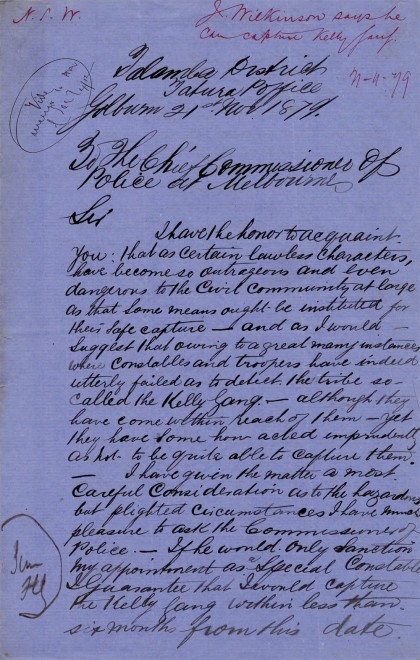 N.S.W.
J. Wilkinson says he
can capture Kelly gang.
Talamba District
Tatura P. Office
Golburn 21st Nov. 1879.
To The Chief Commissioner of
Police at Melbourne
Sir
I have the honor to acquaint
You: that as certain lawless characters,
have become so outrageous and even
dangerous to the Civil Community at large
as that some means ought be instituted for
their safe capture — and as I would —
Suggest that owing to a great many instances
where Constables and troopers have indeed
utterly failed as to detect the tribe so-
called the Kelly Gang — although they
have come within reach of them — yet
they have some how acted imprudently
as not to be quite able to capture them.
— I have given the matter a most
Careful Consideration as to the hazardous
but plighted circumstances I have much
pleasure to ask the Commissioner of
Police. — If he would only sanction
my appointment as Special Constable
I Guarantee that I would capture
the Kelly Gang within less than
six months from this date.